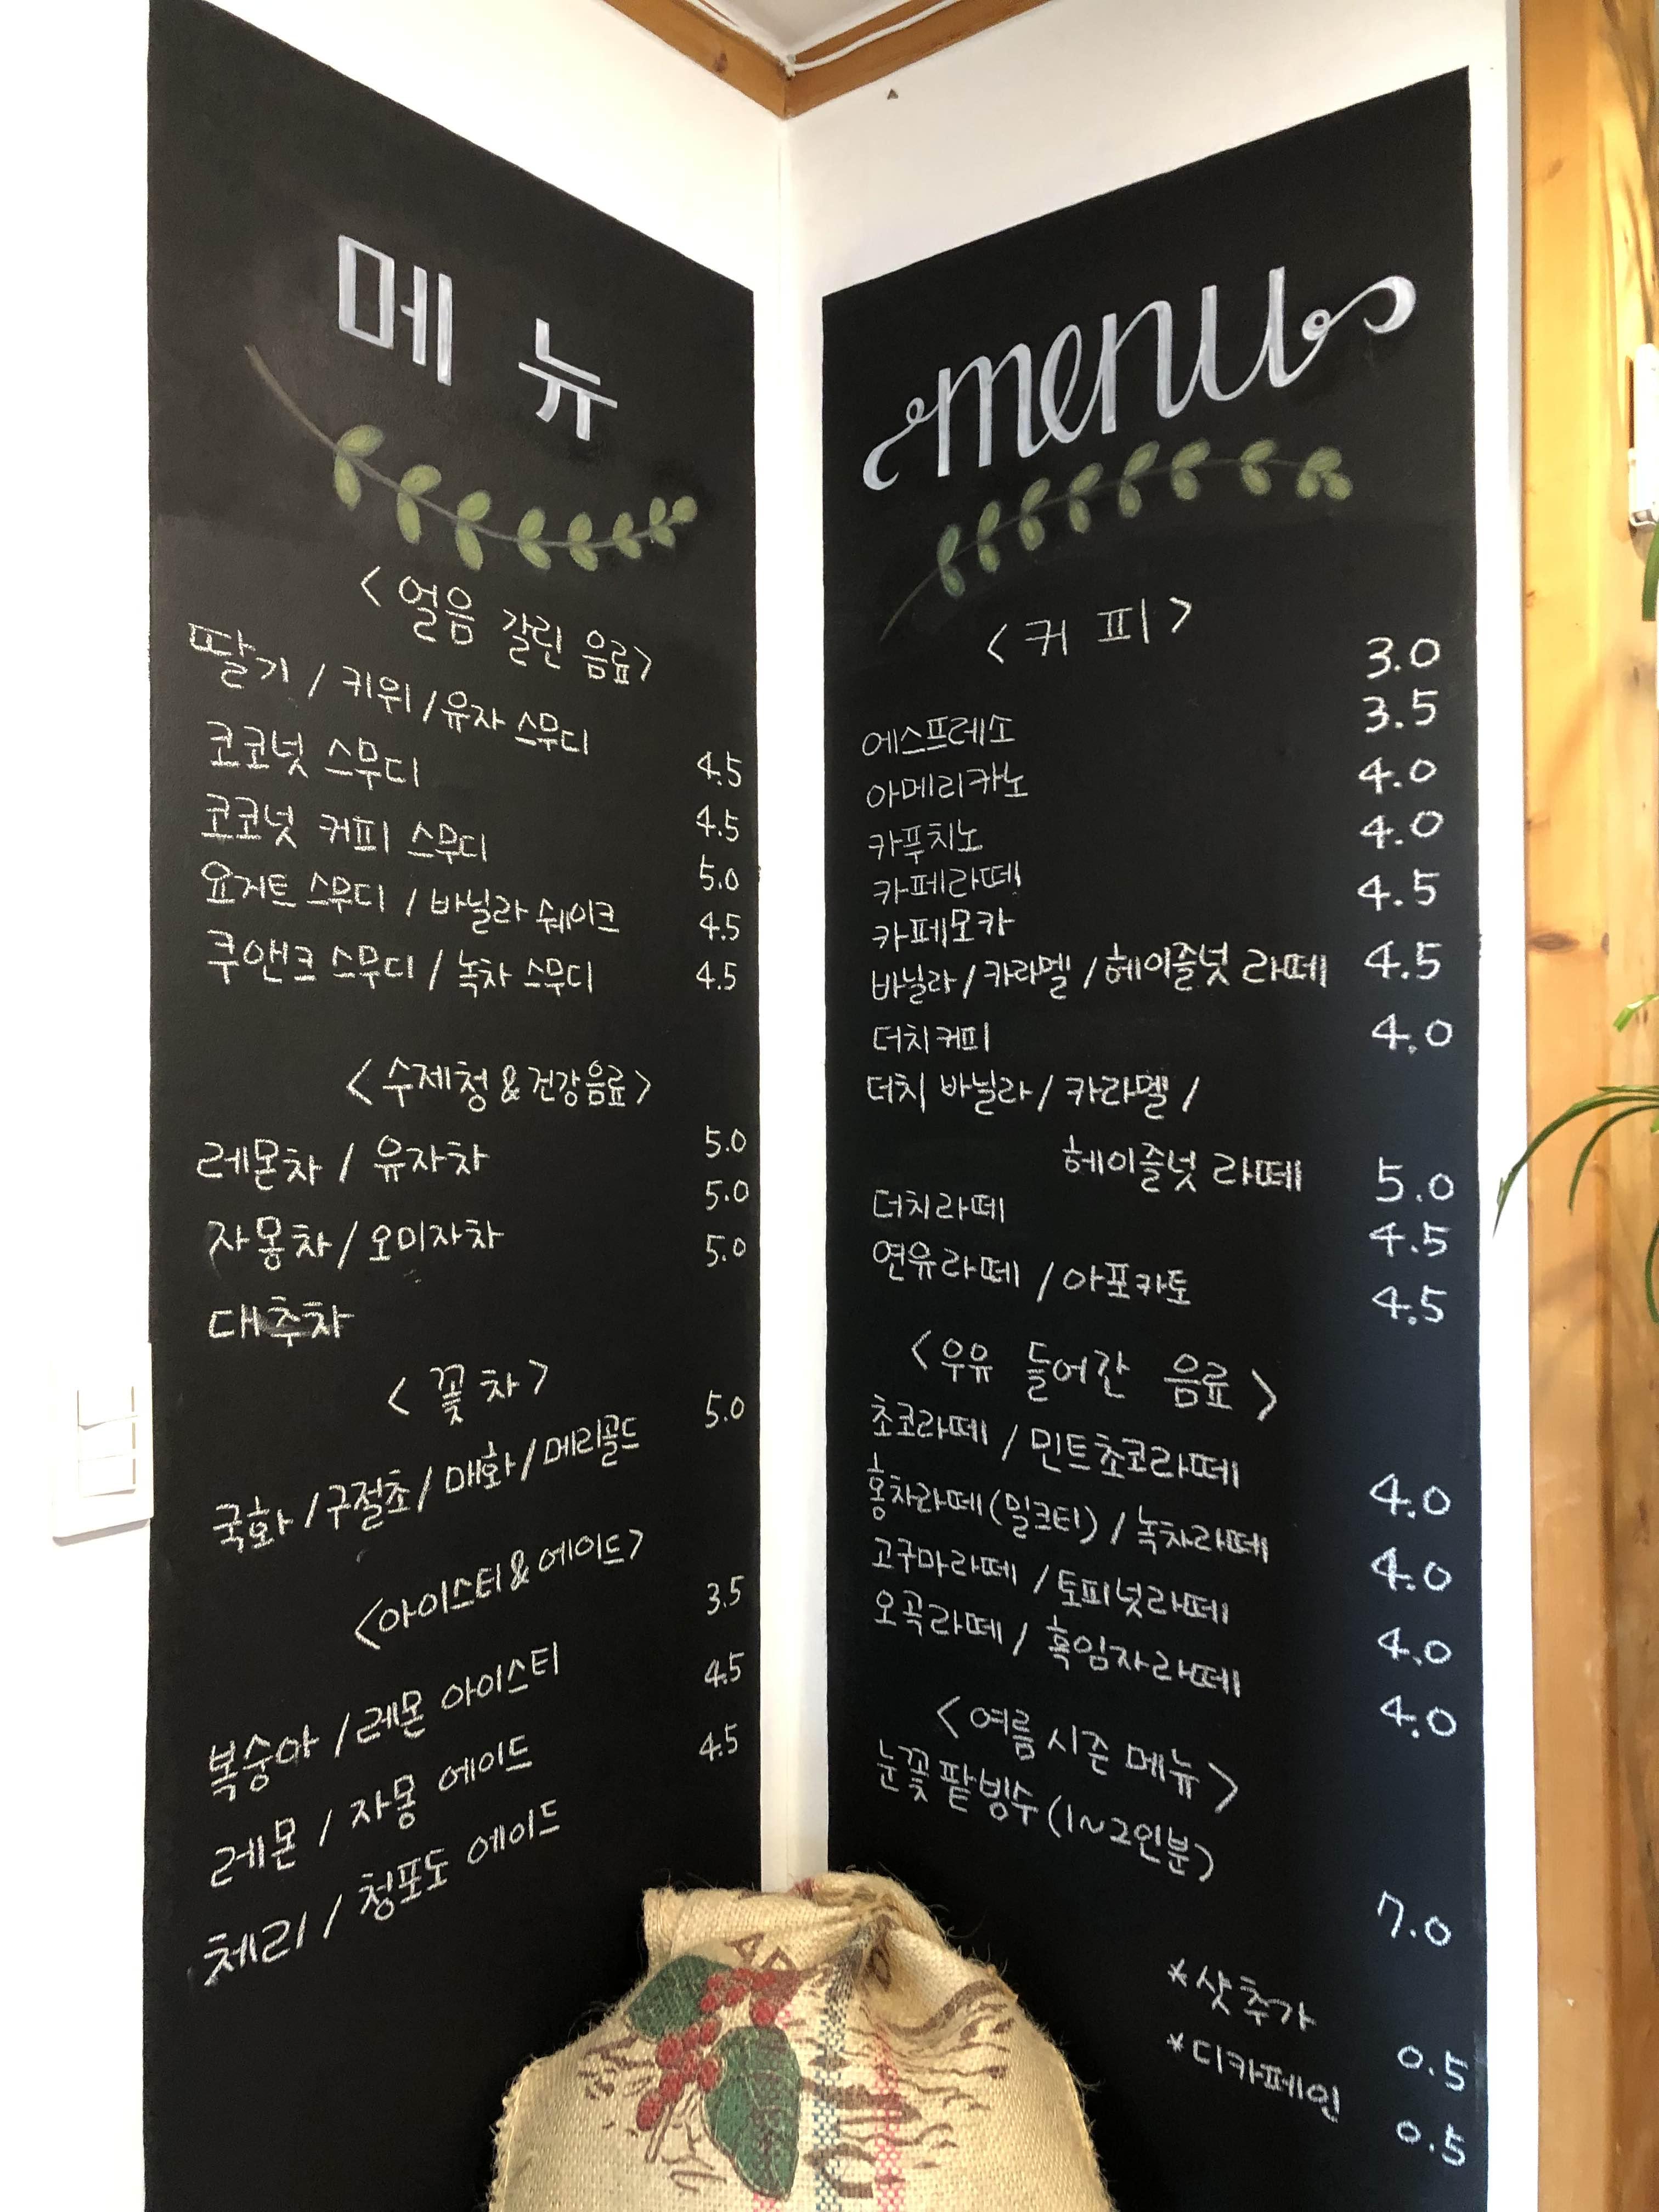 메뉴
<얼음 갈린 음료>
딸기 / 키위 / 유자 스무디 4.5
코코넛 스무디 4.5
코코넛 커피 스무디 5.0
요거트 스무디 / 바닐라 쉐이크 4.5
쿠앤크 스무디 / 녹차 스무디 4.5
<수제청 & 건강음료>
레몬차 / 유자차 5.0
자몽차 / 오미자차 5.0
대추차 5.0
<꽃차>
국화 / 구절초 / 매화 / 메리골드 5.0
<아이스티 & 에이드>
복숭아 / 레몬 아이스티 3.5
레몬 / 자몽 에이드 4.5
체리 / 청포도 에이드 4.5
menu
<커피>
에스프레소 3.0
아메리카노 3.5
카푸치노 4.0
카페라떼 4.0
카페모카 4.5
바닐라 / 카라멜 / 헤이즐넛 라떼 4.5
더치커피 4.0
더치 바닐라 / 카라멜 /
헤이즐넛 라떼 5.0
더치라떼 4.5
연유라떼 / 아포카토 4.5
<우유 들어간 음료>
초코라떼 / 민트초코라떼 4.0
홍차라떼(밀크티) / 녹차라떼 4.0
고구마라떼 / 토피넛라떼 4.0
오곡라떼 / 흑임자라떼 4.0
<여름 시즌 메뉴>
눈꽃팥빙수 (1~2인분) 7.0
*샷추가 0.5
*디카페인 0.5